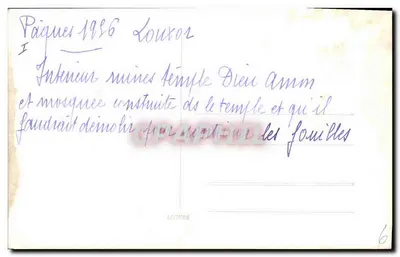 Pâques 1936 Louxor
I
Intérieur ruines temple Dieu Amon
et mosquée construite ds le temple et qu'il
faudrait démolir pour continuer les fouilles
6